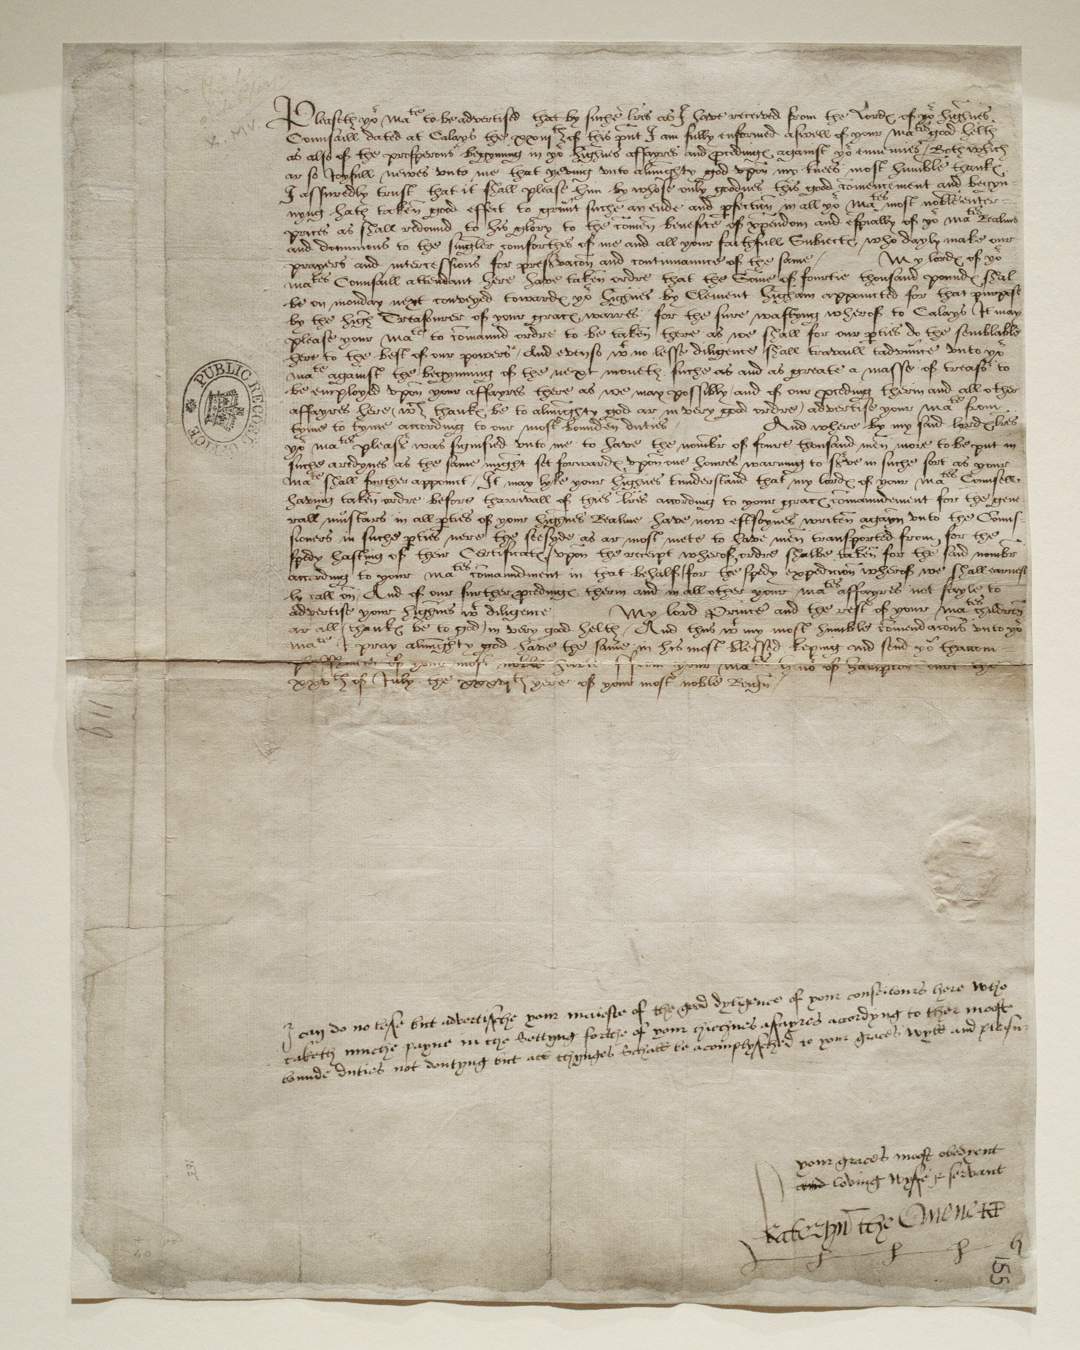 Pleaseth yor Mate to be advertised that by suche lres as I have receved from the Lordz of yor highnes
Counsaill dated at Calays the xxiiith of this pnt I am fully enformed aswell of your Mates good helth
as also of the prosperous begynning in yor highnes affayres and pcedingz against yor ennemies / Both which
ar so Joyfull newes unto me that geving unto almighty god upon my knees most humble thankz
I assuredly trust that it shall please him by whose only goodnes this good comencement and begyn-
nyng hath taken good effect to graunt suche an ende and pfection in all yor Mates most noble enter-
prices as shall redound to his glory to the comen benefite of xpendom and espially of yor Mates Realme
and dominions to the singler comforthes of me and all your faithfull Subiectz who dayly make our
prayers and intercessions for preservacon and continuaunce of the same / My lordz of yor
Mates Counsaill attendant here have taken ordre that the Some of fourtie thousand poundz shal
be on monday next conveyed towardz yor highnes by Clement higham appoincted for that purpose
by the high Treasourer of your gracz warres for the sure wafting wherof to Calays It may
please your Mate to comaund ordre to be taken there as we shall for our pties do the semblable
here to the best of our powers / And evenso wt no lesse diligence shall travaill tadvaunce unto yor
Mate against the begynning of the next moneth suche as and as greate a masse of treasr to
be employed upon your affayres there as we may possibly / and of our pceding therin and all other
affayres here / wch thankz be to almighty god ar in very good ordre / advertise your Mate from
tyme to tyme according to our most bounden duties And where by my said lordz lres
yor Mates please was signified unto me to have the nombr of foure thousand men more to be put in
suche aredynes as the same might set forwardz upon one houres warning to serve in suche sort as your
Mate shall further appoint / It may lyke your highnes tunderstand that my lordz of your Mates Counsell
having taken ordre before tharrivall of thies lres according to your gracz comaundement for the gene-
rall mustars in all pties of your highnes Realme have now eftsoynes written again unto the Comis-
sioners in suche pties nere the seesyde as ar most mete to have men transported from for the
spedy hasting of their Certificatz upon the receipt wherof ordre shalbe taken for the said nombr
according to your Mates comaundment in that behalf / for the spedy expedicion wherof we shall earnest-
ly call on / And of our further pcedingz therin and in all other your Mates affayres not fayle to
advertise your highnes wt diligence My lord Prince and the rest of your Mates children
ar all (thankz be to god) in very good helth / And thus wt my most humble comendacons unto yor
Mate I pray almighty god have the same in his most blessed keping and send yor
of your most noble From your Mates of Hampton Court the
xxvth of July the xxxvith yere of your most noble Reign
I can do no lesse but advertische your maieste of the good dyligence of your conseilours here Who
taketh muche payne in the Settyng forthe of your hieghnes afayres accordyng to ther moost
bounde duties not doutyng but all thynges Schall be acomplysched to your graces wyll and
your graces moost obedyent
and loving wyfe & servant
Kateryn the Quene KP
PUBLIC RECORD OFFICE
119
155